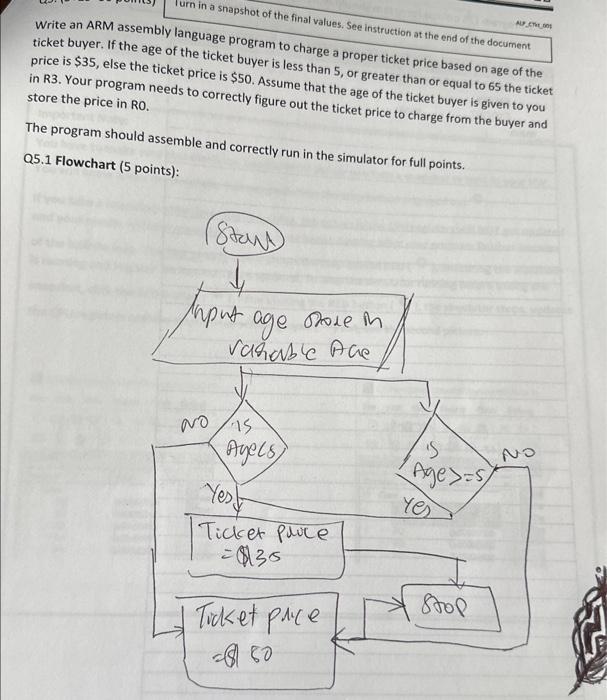 Turn in a snapshot of the final values. See instruction at the end of the document
Write an ARM assembly language program to charge a proper ticket price based on age of the
ticket buyer. If the age of the ticket buyer is less than 5, or greater than or equal to 65 the ticket
price is $35, else the ticket price is $50. Assume that the age of the ticket buyer is given to you
in R3. Your program needs to correctly figure out the ticket price to charge from the buyer and
store the price in R0.
The program should assemble and correctly run in the simulator for full points.
Q5.1 Flowchart (5 points):
Start
Input age store in
variable Age
NO
is
Age<5
is
Age>=5
NO
Yes
Yes
Ticket price
=$35
Ticket price
=$50
Stop